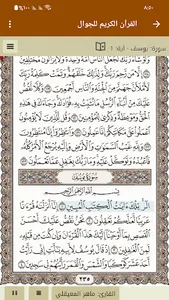 ٨:٥٠
القرآن الكريم للجوال
سورة: يوسف - آية: 1
وَلَوْ شَآءَ رَبُّكَ لَجَعَلَ ٱلنَّاسَ أُمَّةً وَٰحِدَةً وَلَا يَزَالُونَ مُخْتَلِفِينَ
١١٨ إِلَّا مَن رَّحِمَ رَبُّكَ وَلِذَٰلِكَ خَلَقَهُمْ وَتَمَّتْ كَلِمَةُ رَبِّكَ
لَأَمْلَأَنَّ جَهَنَّمَ مِنَ ٱلْجِنَّةِ وَٱلنَّاسِ أَجْمَعِينَ ١١٩ وَكُلًّا
نَّقُصُّ عَلَيْكَ مِنْ أَنۢبَآءِ ٱلرُّسُلِ مَا نُثَبِّتُ بِهِۦ فُؤَادَكَ وَجَآءَكَ
فِى هَٰذِهِ ٱلْحَقُّ وَمَوْعِظَةٌ وَذِكْرَىٰ لِلْمُؤْمِنِينَ ١٢٠ وَقُل لِّلَّذِينَ
لَا يُؤْمِنُونَ ٱعْمَلُوا۟ عَلَىٰ مَكَانَتِكُمْ إِنَّا عَٰمِلُونَ ١٢١ وَٱنتَظِرُوٓا۟
إِنَّا مُنتَظِرُونَ ١٢٢ وَلِلَّهِ غَيْبُ ٱلسَّمَٰوَٰتِ وَٱلْأَرْضِ وَإِلَيْهِ يُرْجَعُ ٱلْأَمْرُ
كُلُّهُۥ فَٱعْبُدْهُ وَتَوَكَّلْ عَلَيْهِ وَمَا رَبُّكَ بِغَٰفِلٍ عَمَّا تَعْمَلُونَ ١٢٣
سُورَةُ يُوسُفَ
بِسْمِ ٱللَّهِ ٱلرَّحْمَٰنِ ٱلرَّحِيمِ
الٓر تِلْكَ ءَايَٰتُ ٱلْكِتَٰبِ ٱلْمُبِينِ ١ إِنَّآ أَنزَلْنَٰهُ قُرْءَٰنًا عَرَبِيًّا
لَّعَلَّكُمْ تَعْقِلُونَ ٢ نَحْنُ نَقُصُّ عَلَيْكَ أَحْسَنَ ٱلْقَصَصِ
بِمَآ أَوْحَيْنَآ إِلَيْكَ هَٰذَا ٱلْقُرْءَانَ وَإِن كُنتَ مِن قَبْلِهِۦ
لَمِنَ ٱلْغَٰفِلِينَ ٣ إِذْ قَالَ يُوسُفُ لِأَبِيهِ يَٰٓأَبَتِ إِنِّى رَأَيْتُ
أَحَدَ عَشَرَ كَوْكَبًا وَٱلشَّمْسَ وَٱلْقَمَرَ رَأَيْتُهُمْ لِى سَٰجِدِينَ ٤
٢٣٥
القارئ: ماهر المعيقلي